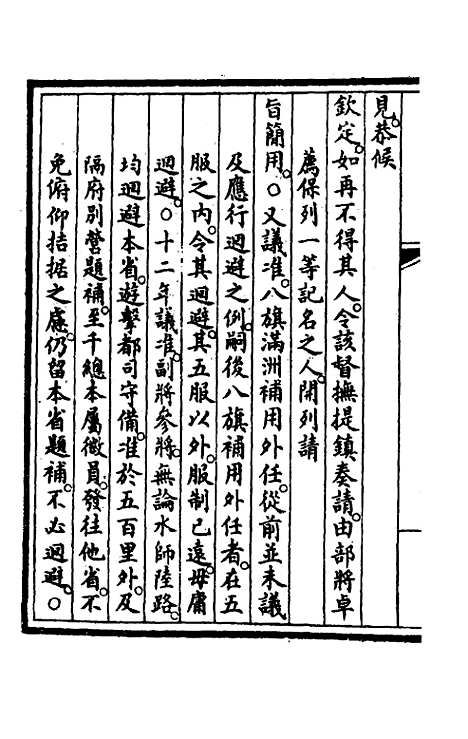 見。恭候
欽定。如再不得其人。令該督撫提鎮奏請。由部將卓
薦保列一等記名之人。開列請
旨簡用。○又議准。八旗滿洲補用外任。從前並未議
及應行迴避之例。嗣後八旗補用外任者。在五
服之內。令其迴避。其五服以外。服制已遠。毋庸
迴避。○十二年議准。副將參將。無論水師陸路。
均迴避本省。遊擊都司守備。准於五百里外。及
隔府別營題補。至千總本屬微員。發往他省。不
免俯仰拮据之慮。仍留本省題補。不必迴避。○